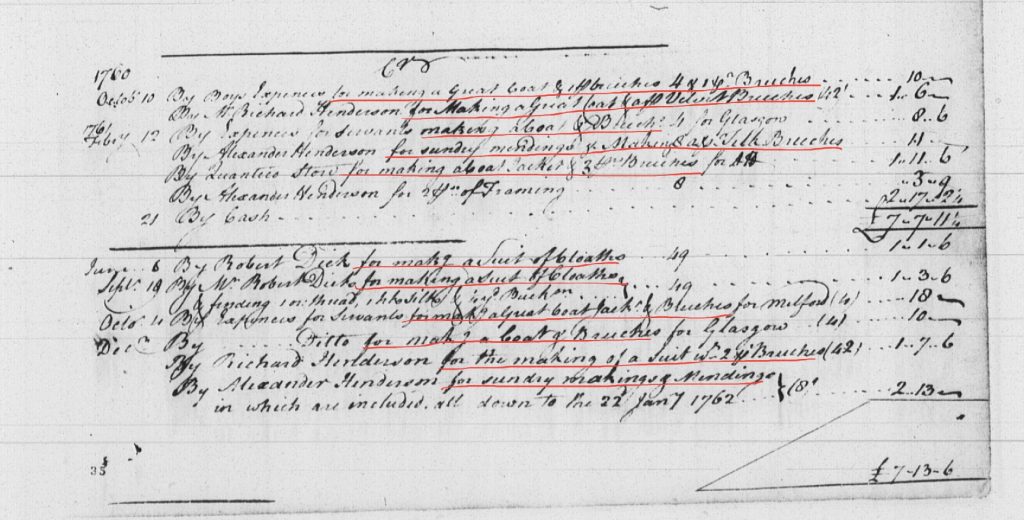 1760
Cr
Octob 10 By Boys Expences for making a Great Coat & Breeches 4 & 1 pr Breeches 10
By Mr Richard Henderson for Making a Great Coat & Velvet Breeches (42) 1 6
12 By Expences for Servants making a Coat & Breeches 4 for Glasgow 8 6
By Alexander Henderson for sundry mendings & Making Silk Breeches 11
By Quantico Store for making a Coat Jacket & 3 Breeches for 1 11 6
By Alexander Henderson for of Framing 8 3 9
21 By Cash 2 17 2¼
£ 7 7 11¼
June 6 By Robert Dick for makg a Suit of Cloaths 49 1 1 6
Septr 19 By Mr Robert Dick for making a Suit of Cloaths
& finding thread silk 49 1 3 6
Octo 4 By Expences for Servants for makg a great Coat Jackt & Breeches for Milford (4) 18
Decr By Ditto for makg a Coat & Breeches for Glasgow (4) 10
By Richard Henderson for the making of a Suit wth 2 pr Breeches (42) 1 7 6
By Alexander Henderson for sundry makings & Mendings
in which are included all down to the 22d Jany 1762 (8) 2 13
£ 7 13 6
35